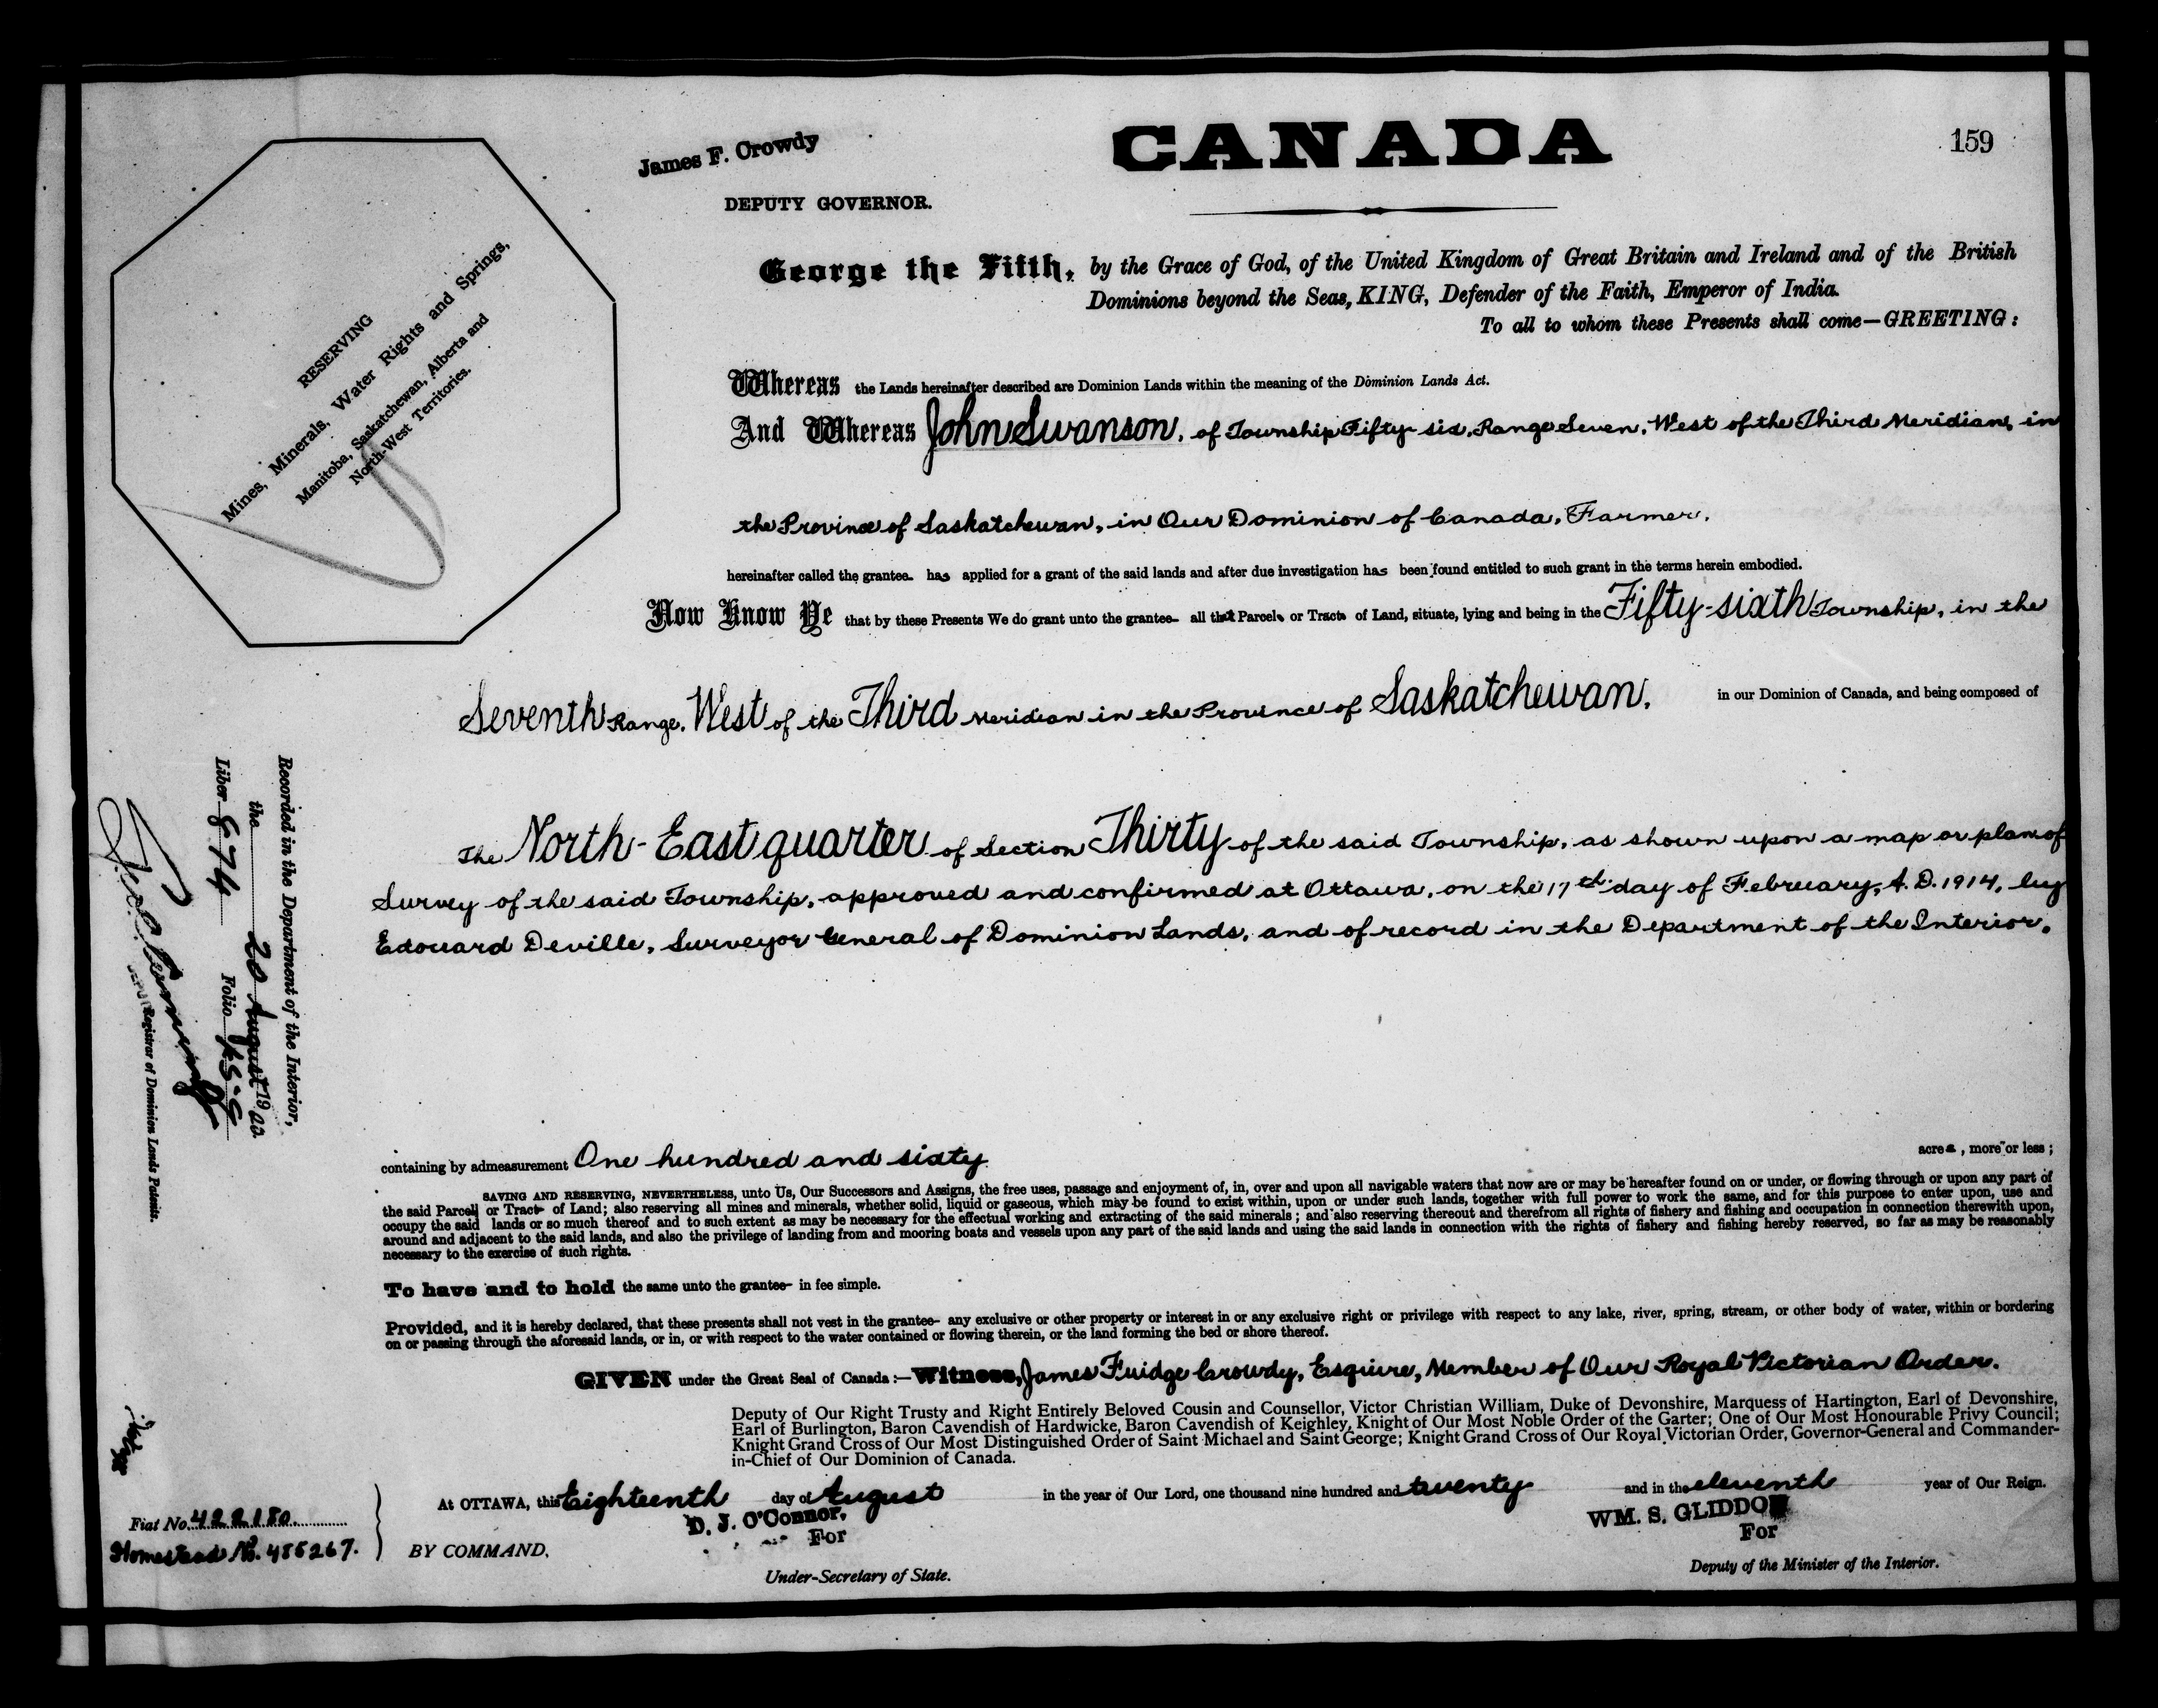 CANADA
159
James F. Crowdy
DEPUTY GOVERNOR.
George the Fifth, by the Grace of God, of the United Kingdom of Great Britain and Ireland and of the British
Dominions beyond the Seas, KING, Defender of the Faith, Emperor of India.
To all to whom these Presents shall come—GREETING:
RESERVING
Mines, Minerals, Water Rights and Springs,
Manitoba, Saskatchewan, Alberta and
North-West Territories.
Whereas the Lands hereinafter described are Dominion Lands within the meaning of the Dominion Lands Act.
And Whereas John Swanson, of Township Fifty-six, Range Seven, West of the Third Meridian, in
the Province of Saskatchewan, in Our Dominion of Canada, Farmer,
hereinafter called the grantee has applied for a grant of the said lands and after due investigation has been found entitled to such grant in the terms herein embodied.
Now Know Ye that by these Presents We do grant unto the grantee all that Parcel or Tract of Land, situate, lying and being in the Fifty-sixth Township, in the
Seventh Range, West of the Third Meridian in the Province of Saskatchewan, in our Dominion of Canada, and being composed of
The North-East quarter of Section Thirty of the said Township, as shown upon a map or plan of
Survey of the said Township, approved and confirmed at Ottawa, on the 17th day of February, A.D. 1914, by
Edouard Deville, Surveyor General of Dominion Lands, and of record in the Department of the Interior.
Recorded in the Department of the Interior,
the 20 August 1920
Liber 874 Folio 159
Registrar of Dominion Lands Patents.
containing by admeasurement One hundred and sixty acres, more or less;
SAVING AND RESERVING, NEVERTHELESS, unto Us, Our Successors and Assigns, the free uses, passage and enjoyment of, in, over and upon all navigable waters that now are or may be hereafter found on or under, or flowing through or upon any part of
the said Parcel or Tract of Land; also reserving all mines and minerals, whether solid, liquid or gaseous, which may be found to exist within, upon or under such lands, together with full power to work the same, and for this purpose to enter upon, use and
occupy the said lands or so much thereof and to such extent as may be necessary for the effectual working and extracting of the said minerals; and also reserving thereout and therefrom all rights of fishery and fishing and occupation in connection therewith upon,
around and adjacent to the said lands, and also the privilege of landing from and mooring boats and vessels upon any part of the said lands and using the said lands in connection with the rights of fishery and fishing hereby reserved, so far as may be reasonably
necessary to the exercise of such rights.
To have and to hold the same unto the grantee in fee simple.
Provided, and it is hereby declared, that these presents shall not vest in the grantee any exclusive or other property or interest in or any exclusive right or privilege with respect to any lake, river, spring, stream, or other body of water, within or bordering
on or passing through the aforesaid lands, or in, or with respect to the water contained or flowing therein, or the land forming the bed or shore thereof.
GIVEN under the Great Seal of Canada:—Witness, James Fuidge Crowdy, Esquire, Member of Our Royal Victorian Order.
Deputy of Our Right Trusty and Right Entirely Beloved Cousin and Counsellor, Victor Christian William, Duke of Devonshire, Marquess of Hartington, Earl of Devonshire,
Earl of Burlington, Baron Cavendish of Hardwicke, Baron Cavendish of Keighley, Knight of Our Most Noble Order of the Garter; One of Our Most Honourable Privy Council;
Knight Grand Cross of Our Most Distinguished Order of Saint Michael and Saint George; Knight Grand Cross of Our Royal Victorian Order, Governor-General and Commander-
in-Chief of Our Dominion of Canada.
At OTTAWA, this Eighteenth day of August in the year of Our Lord, one thousand nine hundred and twenty and in the eleventh year of Our Reign.
D. J. O'Connor, WM. S. GLIDDON
For For
Fiat No. 422180.
Homestead No. 485267.
BY COMMAND,
Under-Secretary of State. Deputy of the Minister of the Interior.